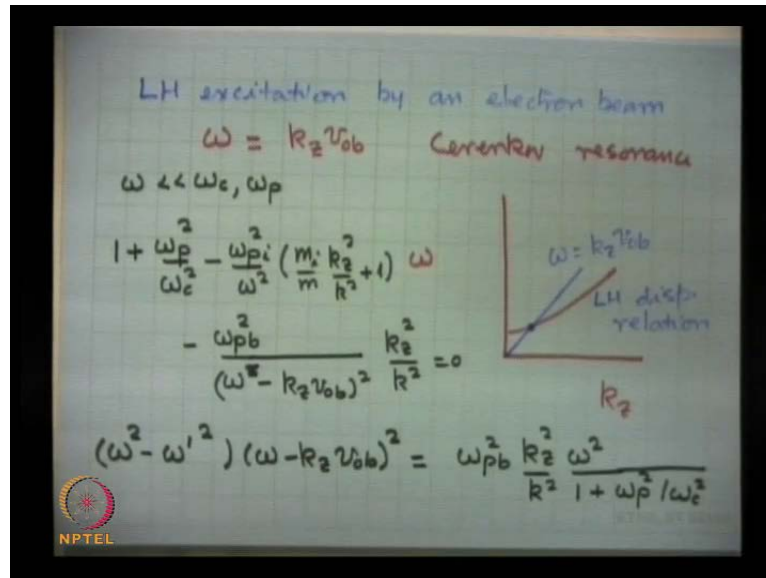 LH excitation by an electron beam
ω = k_z v_ob   Cerenkov resonance
ω << ω_c, ω_p
1 + ω_p²/ω_c² - ω_pi²/ω² (m_i/m k_z²/k² + 1)
- ω_pb²/(ω - k_z v_ob)² k_z²/k² = 0
ω
ω = k_z v_ob
LH disp.
relation
k_z
(ω² - ω'²)(ω - k_z v_ob)² = ω_pb² k_z²/k² ω²/(1 + ω_p²/ω_c²)
NPTEL